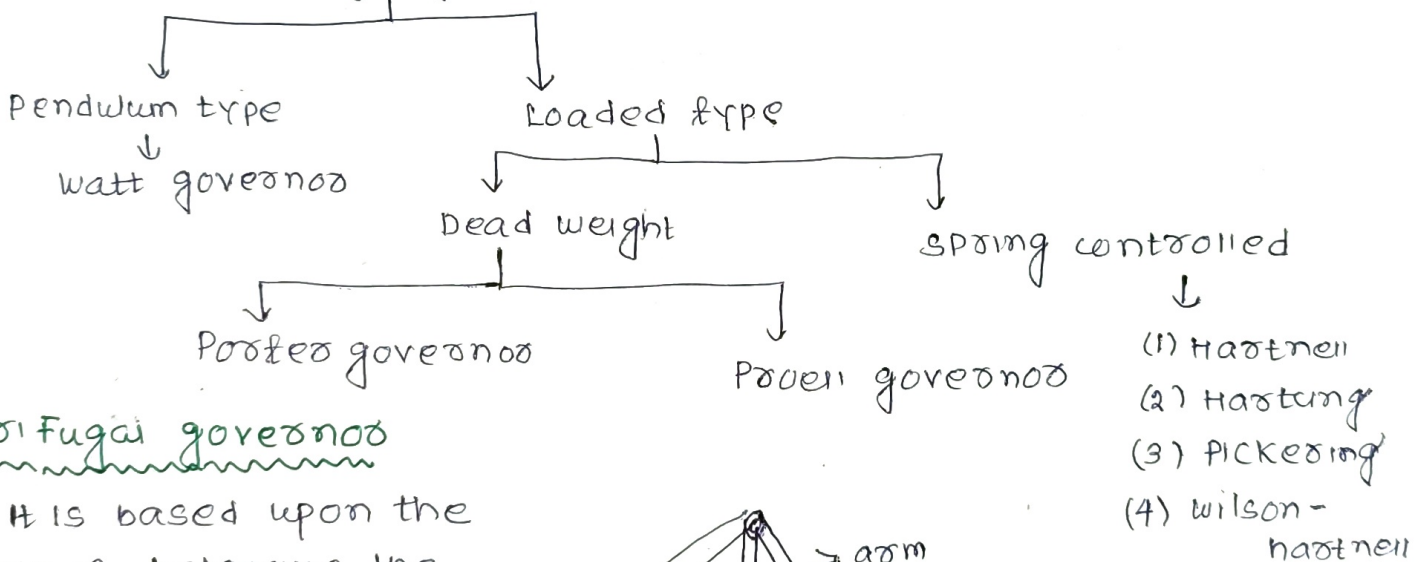 Pendulum type
Loaded type
Watt governor
Dead weight
Spring controlled
Porter governor
Proell governor
(1) Hartnell
(2) Hartung
(3) Pickering
(4) Wilson-
hartnell
Fugai governor
It is based upon the
arm